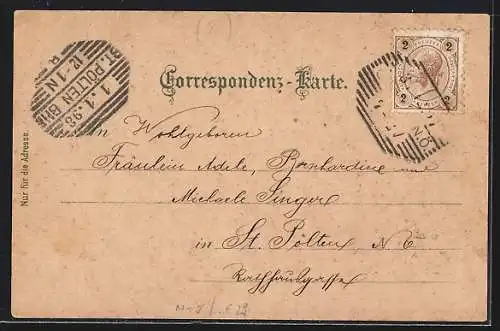 ST. PÖLTEN BHF
1.1.98
12-1N
Correspondenz-Karte.
2 2
2 2
Nur für die Adresse.
An Wohlgeboren
Fräulein Adele, Bernhardine und
Michaele Singer
in St. Pölten, N.Ö.
Rathhausgasse